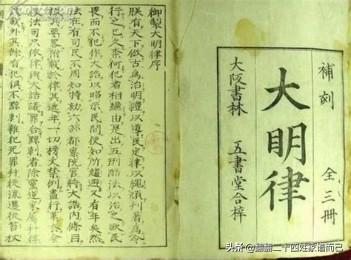 補刻
大明律
全三冊
大阪書林
五書堂合梓
御製大明律序
朕有天下倣古為治明禮以導民定律以繩頑刊著為令
行之已久奈何犯者相繼由是出五刑酷法以治之欲民
畏而不犯作大誥以昭示民間使知所趨避又有年矣然
法在有司民不周知特勅六部都察院官將大誥內條目
撮其要畧附載於律其逓年一切榜文禁例盡行革去今
後法司只依律與大誥議罪合黥刺者除黨逆家屬并律
該載外其餘有犯俱不黥刺雜犯死罪并徒流遷徙笞杖
头条 @二十四姓家谱而已